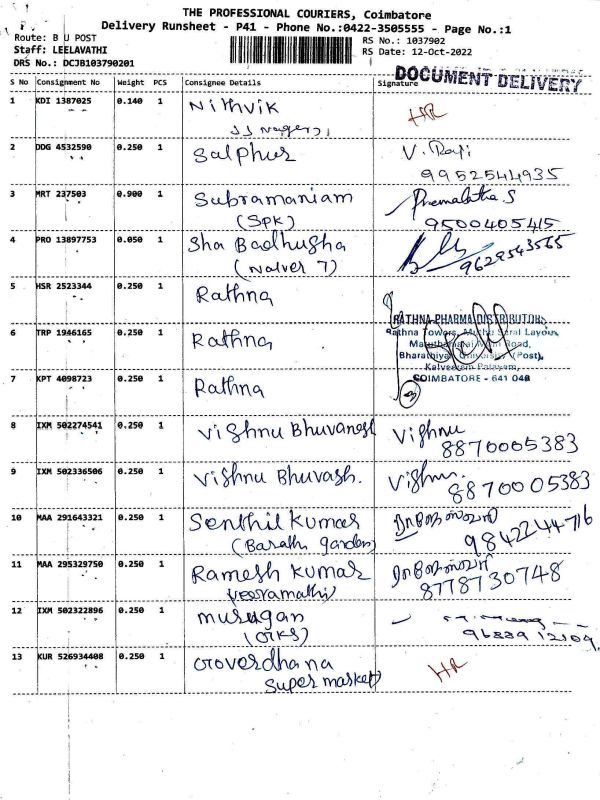 THE PROFESSIONAL COURIERS, Coimbatore
Delivery Runsheet - P41 - Phone No.:0422-3505555 - Page No.:1
Route: B U POST
RS No.: 1037902
Staff: LEELAVATHI
RS Date: 12-Oct-2022
DRS No.: DCJB103790201
DOCUMENT DELIVERY
S No Consignment No Weight PCS Consignee Details Signature
1 KDI 1387025 0.140 1 Nithvik HR
JJ Nagar
2 DDG 4532590 0.250 1 Salphur V. Raji
9952544935
3 MRT 237503 0.900 1 Subramaniam Premalatha S
(SPK) 9500405415
4 PRO 13897753 0.050 1 Sha Badhusha
(Nalver 7) 9629543565
5 HSR 2523344 0.250 1 Rathna
RATHNA PHARMA DISTRIBUTORS
Rathna Towers, Layout,
6 TRP 1946165 0.250 1 Rathna
Road,
Bharathiyar University (Post),
Kalveeram Palayam,
COIMBATORE - 641 046
7 KPT 4098723 0.250 1 Rathna
8 IXM 502274541 0.250 1 Vishnu Bhuvanesh Vishnu
8870005383
9 IXM 502336506 0.250 1 Vishnu Bhuvash. Vishnu.
8870005383
10 MAA 291643321 0.250 1 Senthil Kumar
(Barathi garden) 9842244716
11 MAA 295329750 0.250 1 Ramesh Kumar
(veeramathi) 8778730748
12 IXM 502322896 0.250 1 murugan
(OTKS)
13 KUR 526934408 0.250 1 Goverdhana HR
Super market)